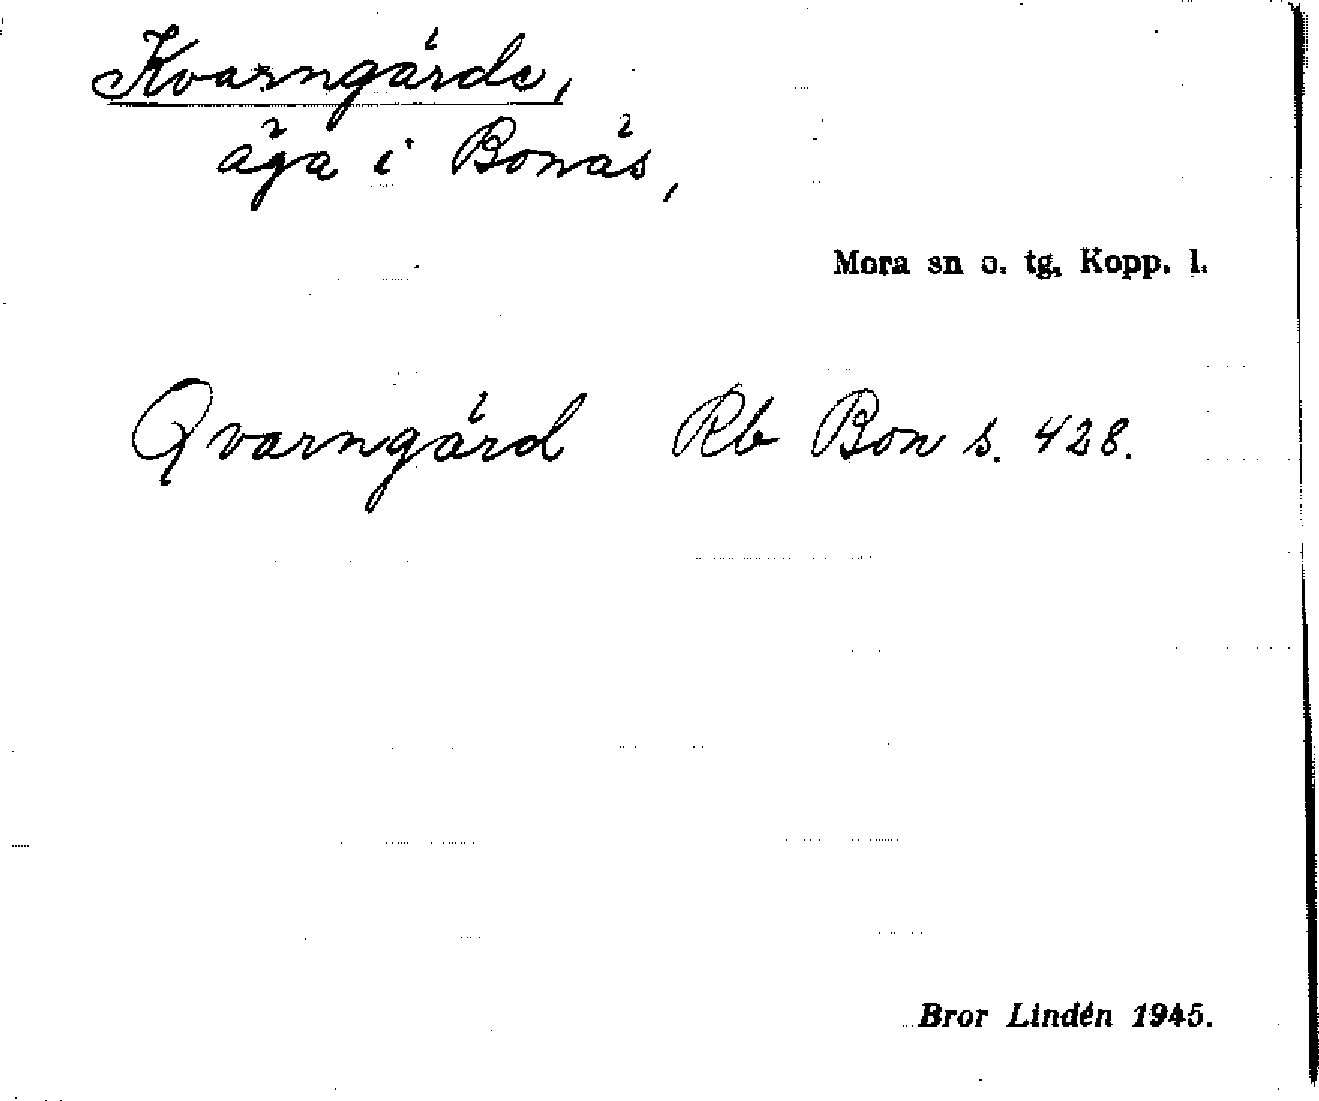 Kvarngärde,
äga i Bonäs,
Mora sn o. tg. Kopp. l.
Qvarngärd Rb Bon s. 428.
Bror Lindén 1945.